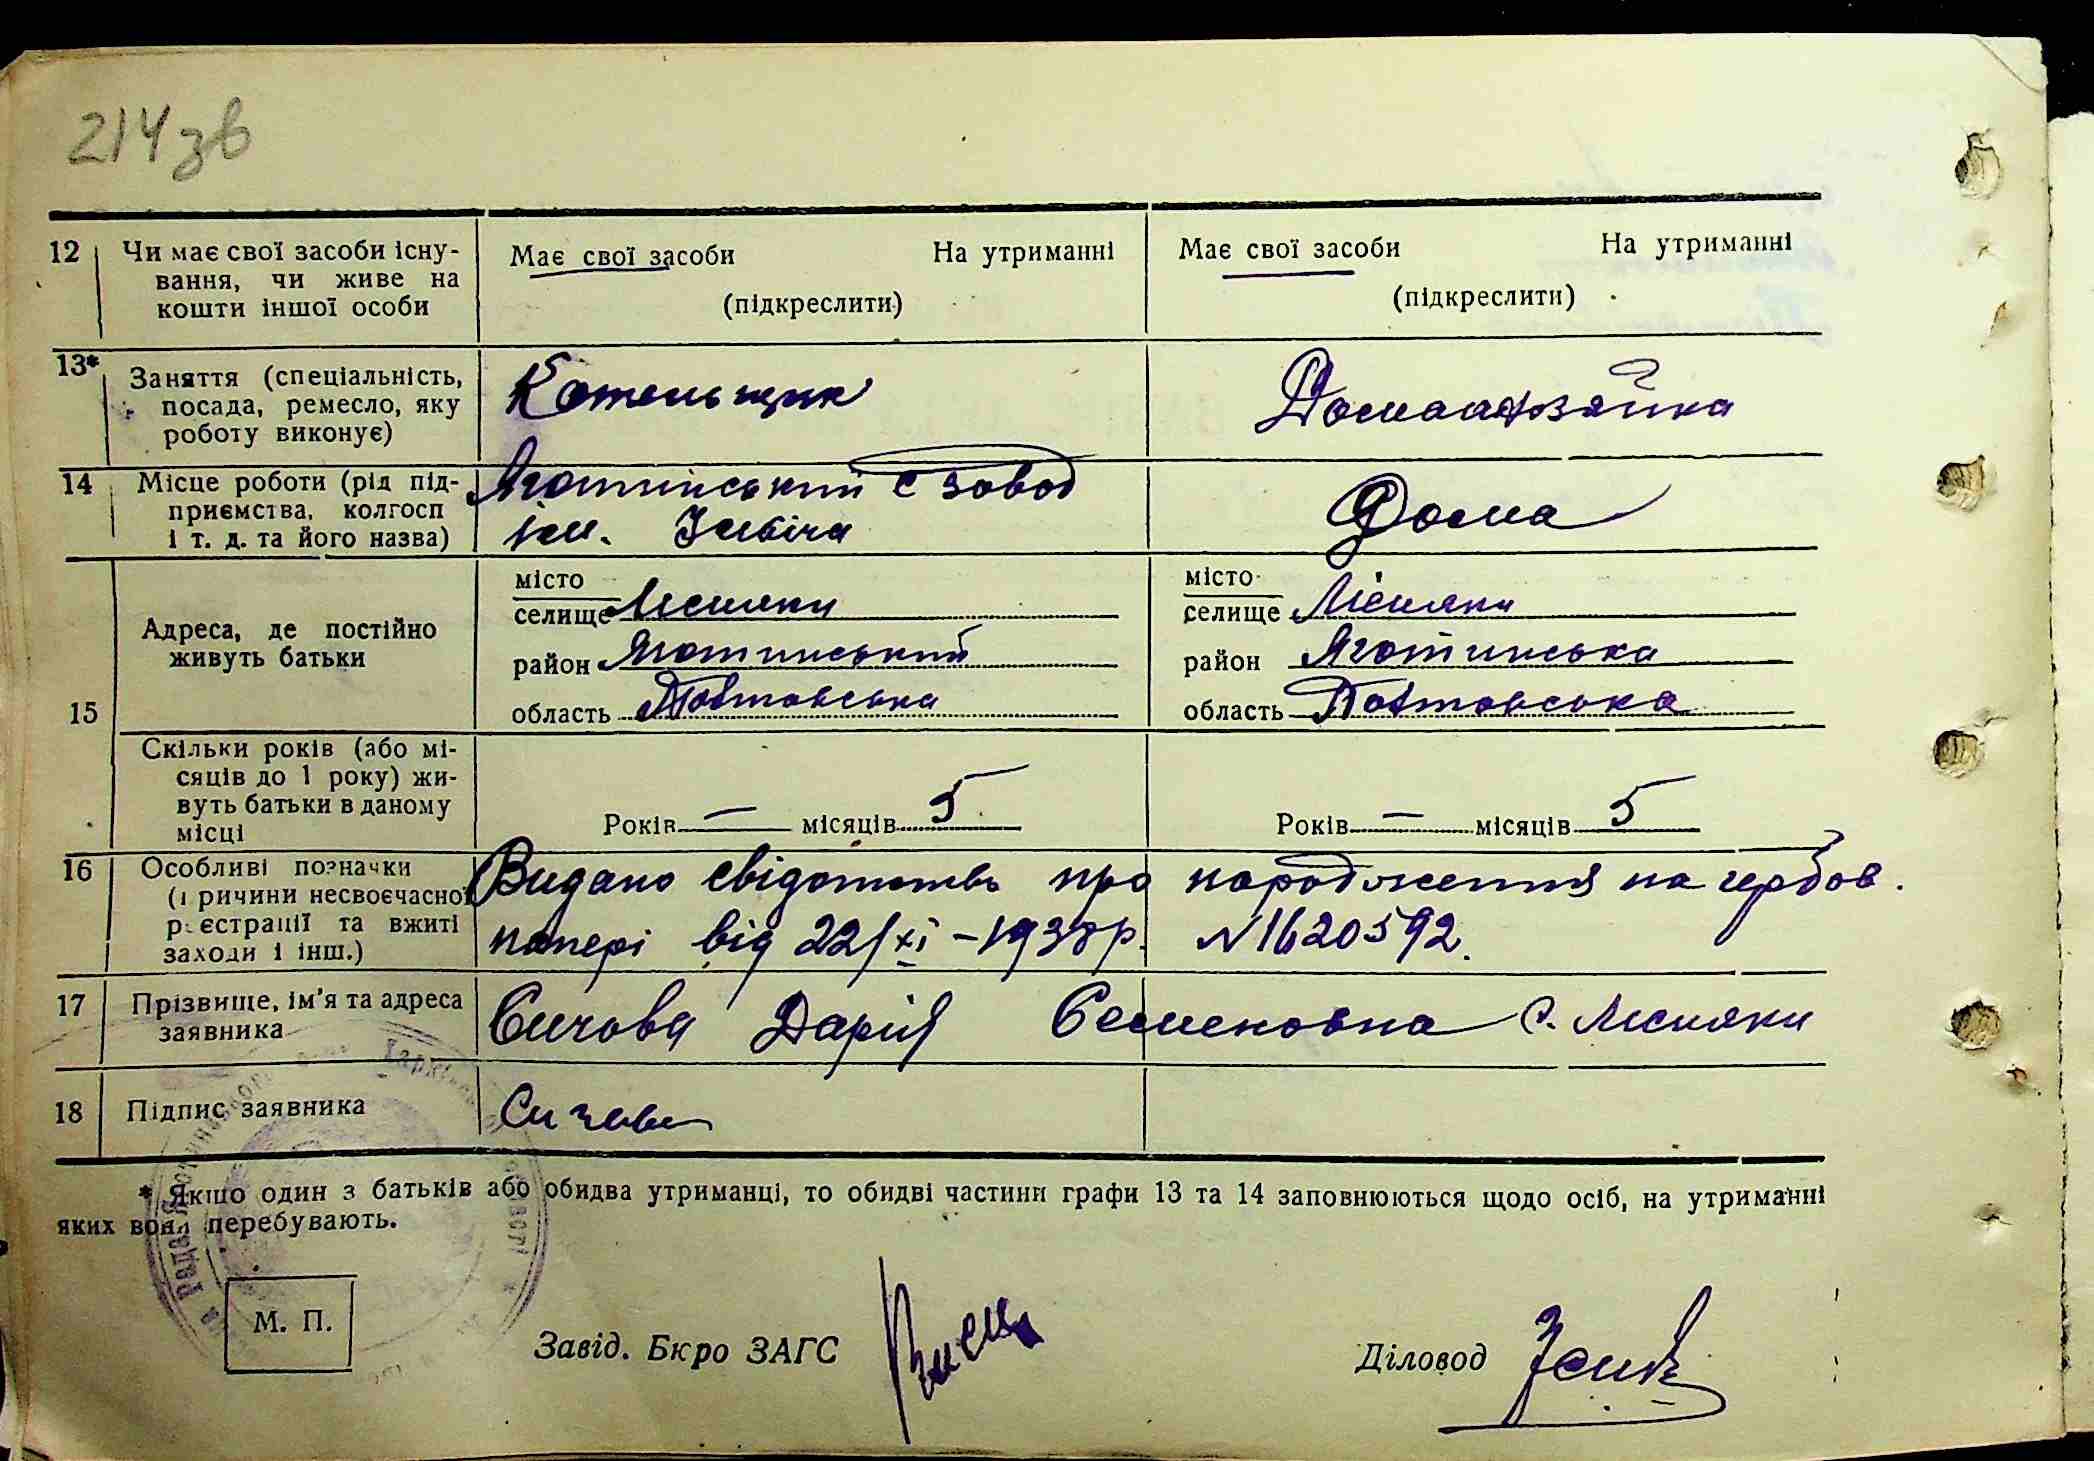 214зв
12 Чи має свої засоби існу-
вання, чи живе на
кошти іншої особи
Має свої засоби На утриманні
(підкреслити)
Має свої засоби На утриманні
(підкреслити)
13* Заняття (спеціальність,
посада, ремесло, яку
роботу виконує)
Котельщик
Домохазяйка
14 Місце роботи (рід під-
приємства, колгосп
і т. д. та його назва)
Яготинський с завод
ім. Ілліча
Дома
15
Адреса, де постійно
живуть батьки
місто
селище Лісняки
район Яготинський
область Полтавська
місто
селище Лісняки
район Яготинська
область Полтавська
Скільки років (або мі-
сяців до 1 року) жи-
вуть батьки в даному
місці
Років — місяців 5
Років — місяців 5
16 Особливі позначки
(причини несвоєчасної
реєстрації та вжиті
заходи і інш.)
Видано свідотство про народження на гербов.
папері від 22/XI – 1938 р. N1620592.
17 Прізвище, ім'я та адреса
заявника
Сичова Дарія Семеновна с. Лісняки
18 Підпис заявника
Сичова
* Якщо один з батьків або обидва утриманці, то обидві частини графи 13 та 14 заповнюються щодо осіб, на утриманні
яких вони перебувають.
М. П.
Завід. Бюро ЗАГС
Діловод